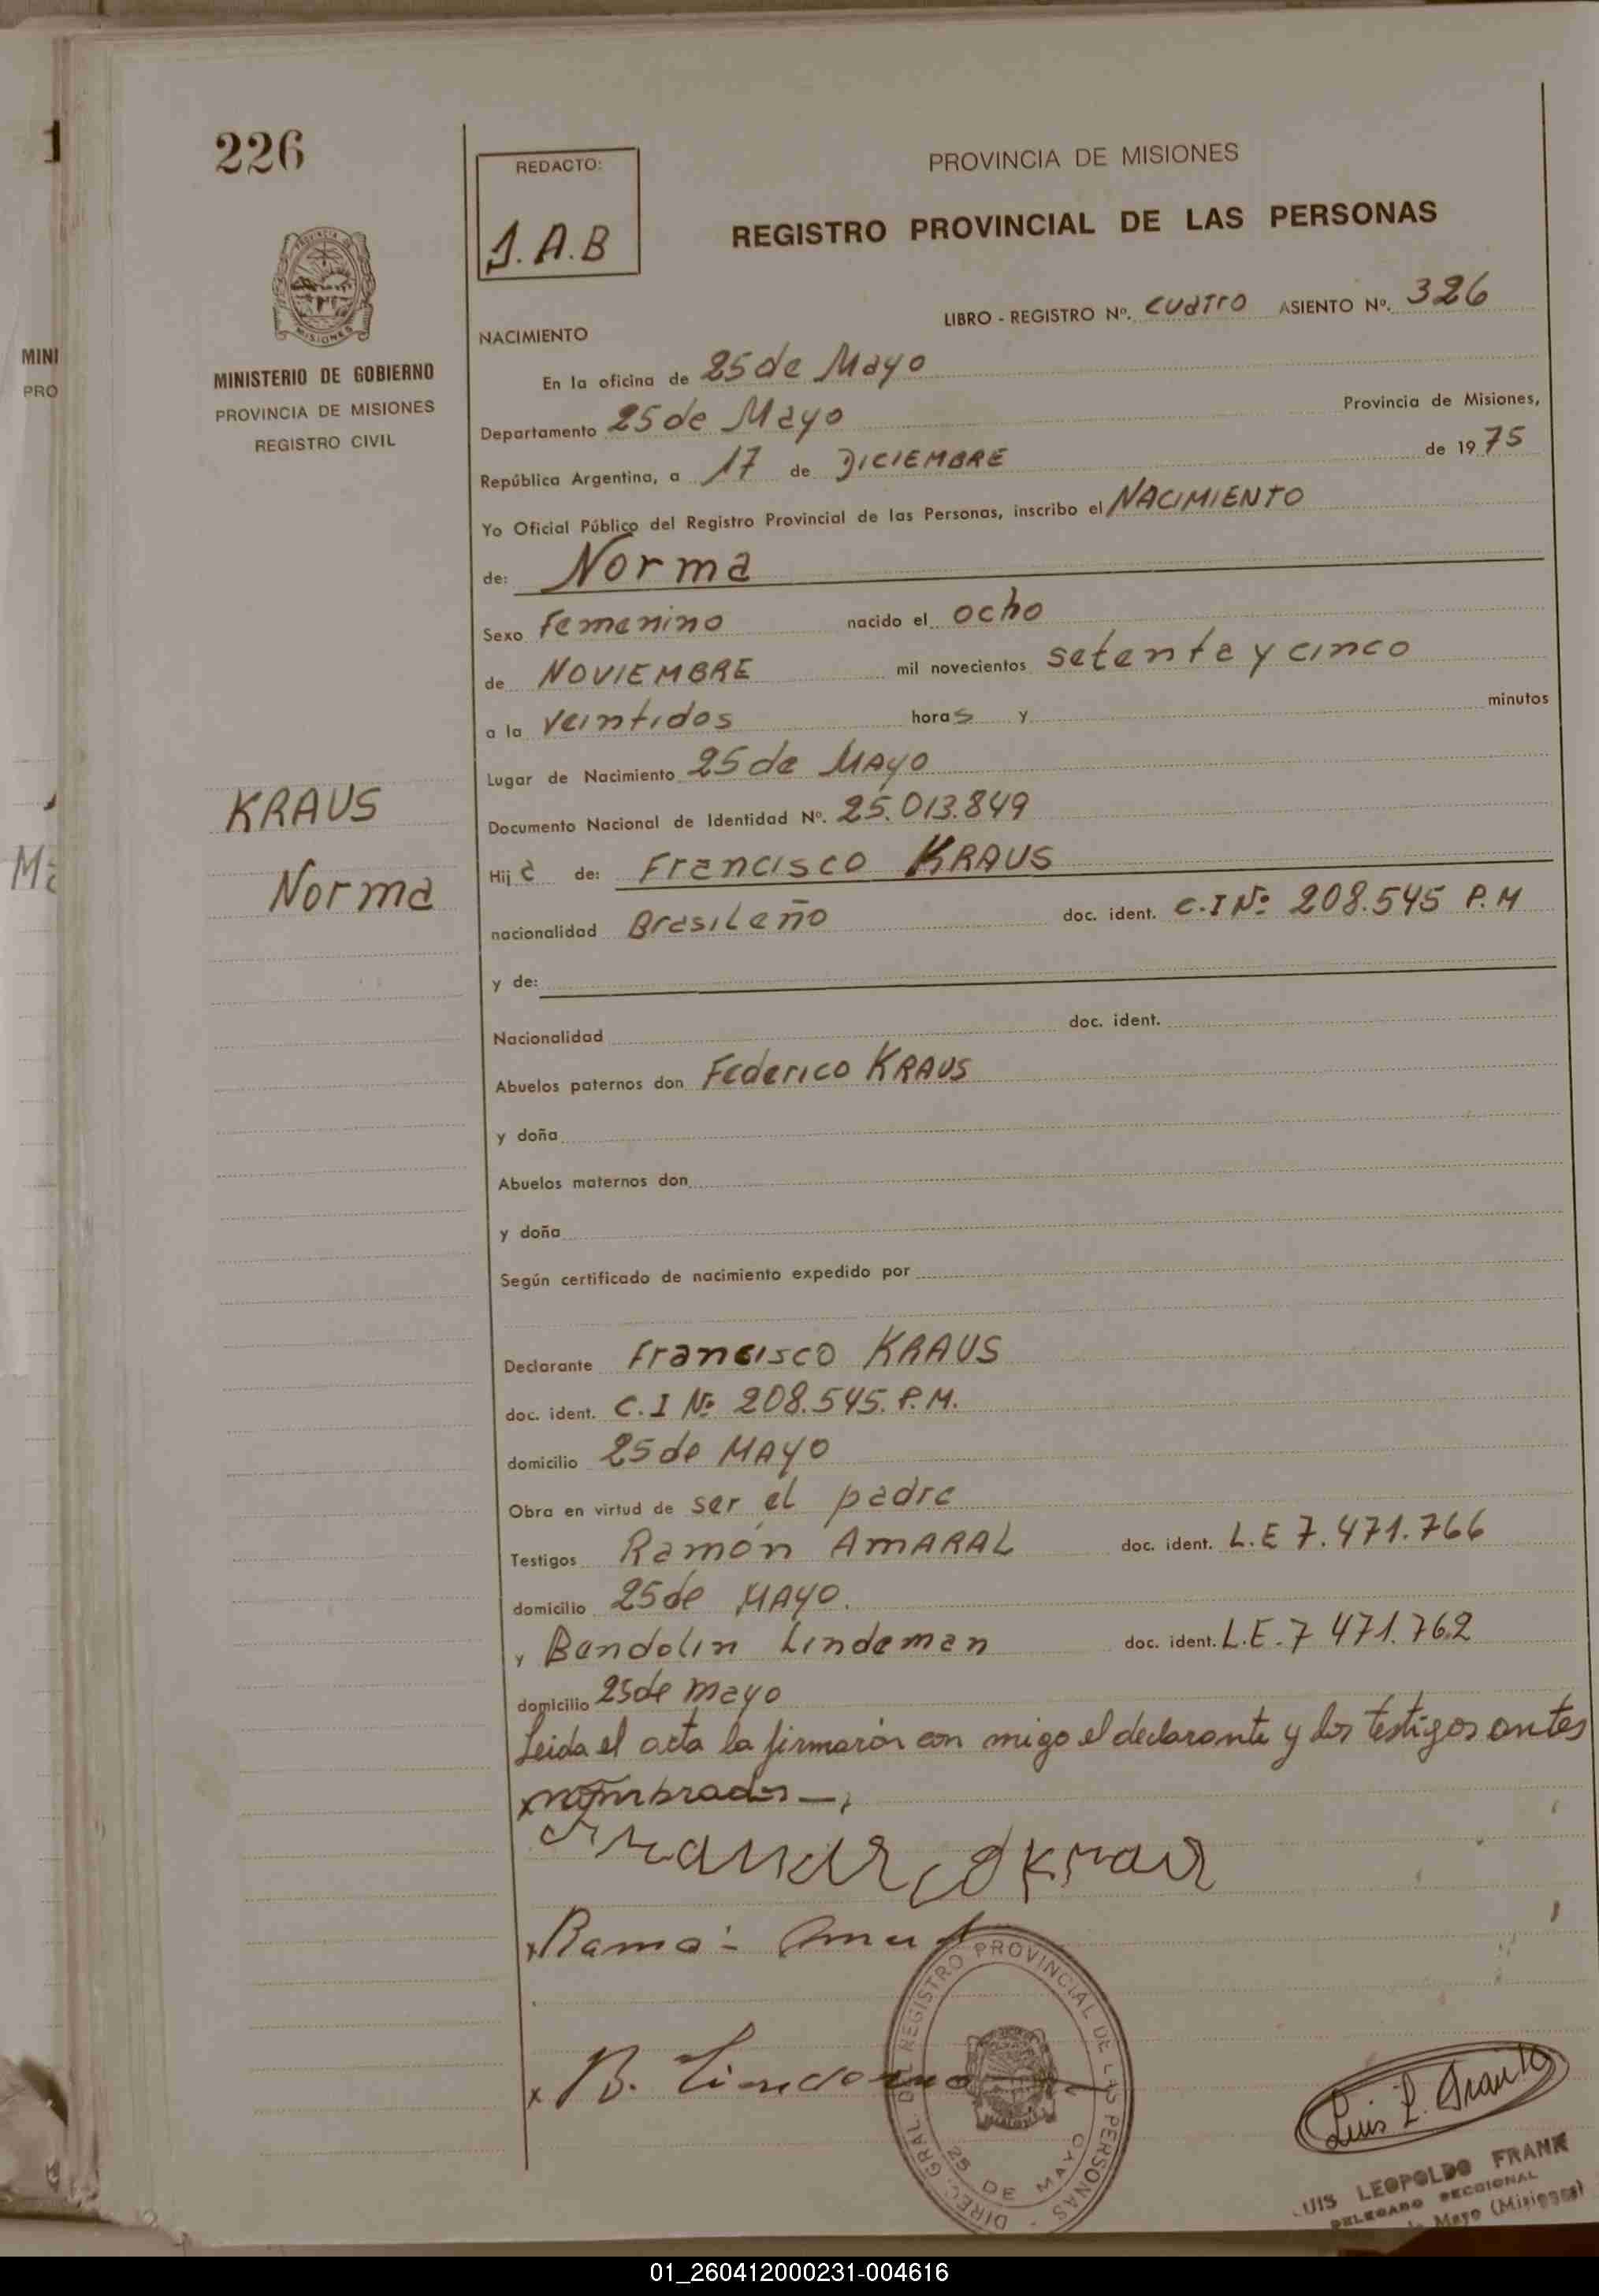 226
REDACTO:
J.A.B
PROVINCIA DE MISIONES
REGISTRO PROVINCIAL DE LAS PERSONAS
LIBRO - REGISTRO Nº. cuatro ASIENTO Nº. 326
PROVINCIA DE
MISIONES
MINISTERIO DE GOBIERNO
PROVINCIA DE MISIONES
REGISTRO CIVIL
MINI
PRO
NACIMIENTO
En la oficina de 25 de Mayo
Departamento 25 de Mayo Provincia de Misiones,
República Argentina, a 17 de DICIEMBRE de 1975
Yo Oficial Público del Registro Provincial de las Personas, inscribo el NACIMIENTO
de: Norma
Sexo Femenino nacido el ocho
de NOVIEMBRE mil novecientos setenta y cinco
a la veintidos horas y minutos
Lugar de Nacimiento 25 de MAYO
KRAUS
Norma
Documento Nacional de Identidad Nº. 25.013.849
Hija de: Francisco KRAUS
nacionalidad Brasileño doc. ident. C.I Nº 208.545 P.M
y de:
Nacionalidad doc. ident.
Abuelos paternos don Federico KRAUS
y doña
Abuelos maternos don
y doña
Según certificado de nacimiento expedido por
Declarante Francisco KRAUS
doc. ident. C.I Nº 208.545. P.M.
domicilio 25 de MAYO
Obra en virtud de ser el padre
Testigos Ramón AMARAL doc. ident. L.E 7.471.766
domicilio 25 de MAYO.
y Bandolin Lindeman doc. ident. L.E. 7 471.762
domicilio 25 de mayo
Leida el acta la firmaron con migo el declarante y los testigos antes
nombrados
B.
DIREC. GRAL. DEL REGISTRO PROVINCIAL DE LAS PERSONAS
25 DE MAYO
Luis L. Frank
LUIS LEOPOLDO FRANK
DELEGADO SECCIONAL
Mayo (Misiones)
01_260412000231-004616